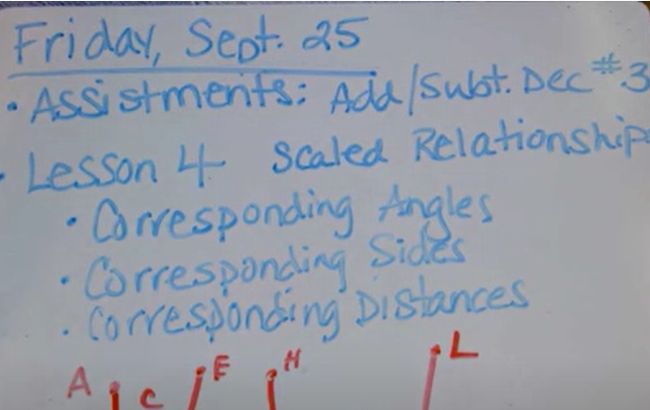 Friday, Sept. 25
• Assistments: Add/Subt. Dec #3
• Lesson 4 Scaled Relationship
• Corresponding Angles
• Corresponding Sides
• Corresponding Distances
A C E H L